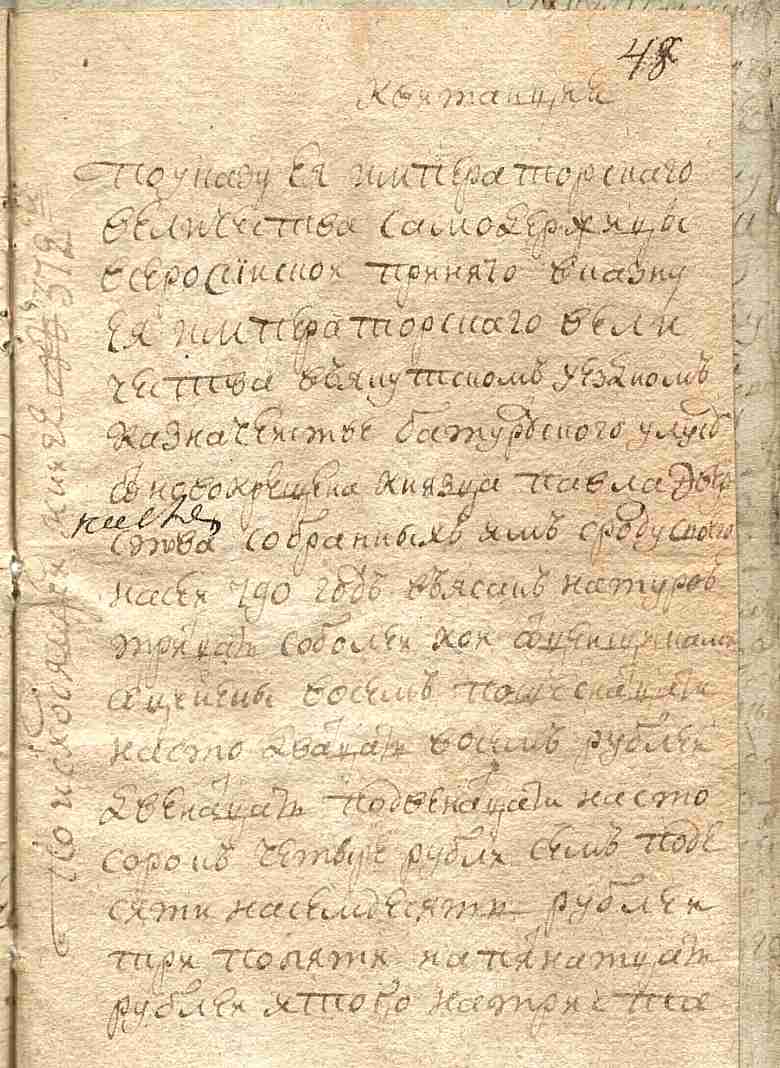 48
Квитанции
По указу ея императорскаго
величества самодержицы
всеросiиской принято в казну
ея императорскаго вели
чества въ якутскомъ уездномъ
казначействе батурускаго улуса
новокрещена князца павла
ства собранныхъ имъ сроду своего
насеи 790 годъ въ ясакъ натурою
тритцать соболей кои оценщиками
оценены восемъ по шеснатцати
на сто дватцать восемъ рублей
двенатцать по двенатцати на сто
сорокъ четыре рубли семъ по де
сяти на семдесятъ рублей
три по пяти на пятнатцать
рублей а того на триста
По исходящей книге 372